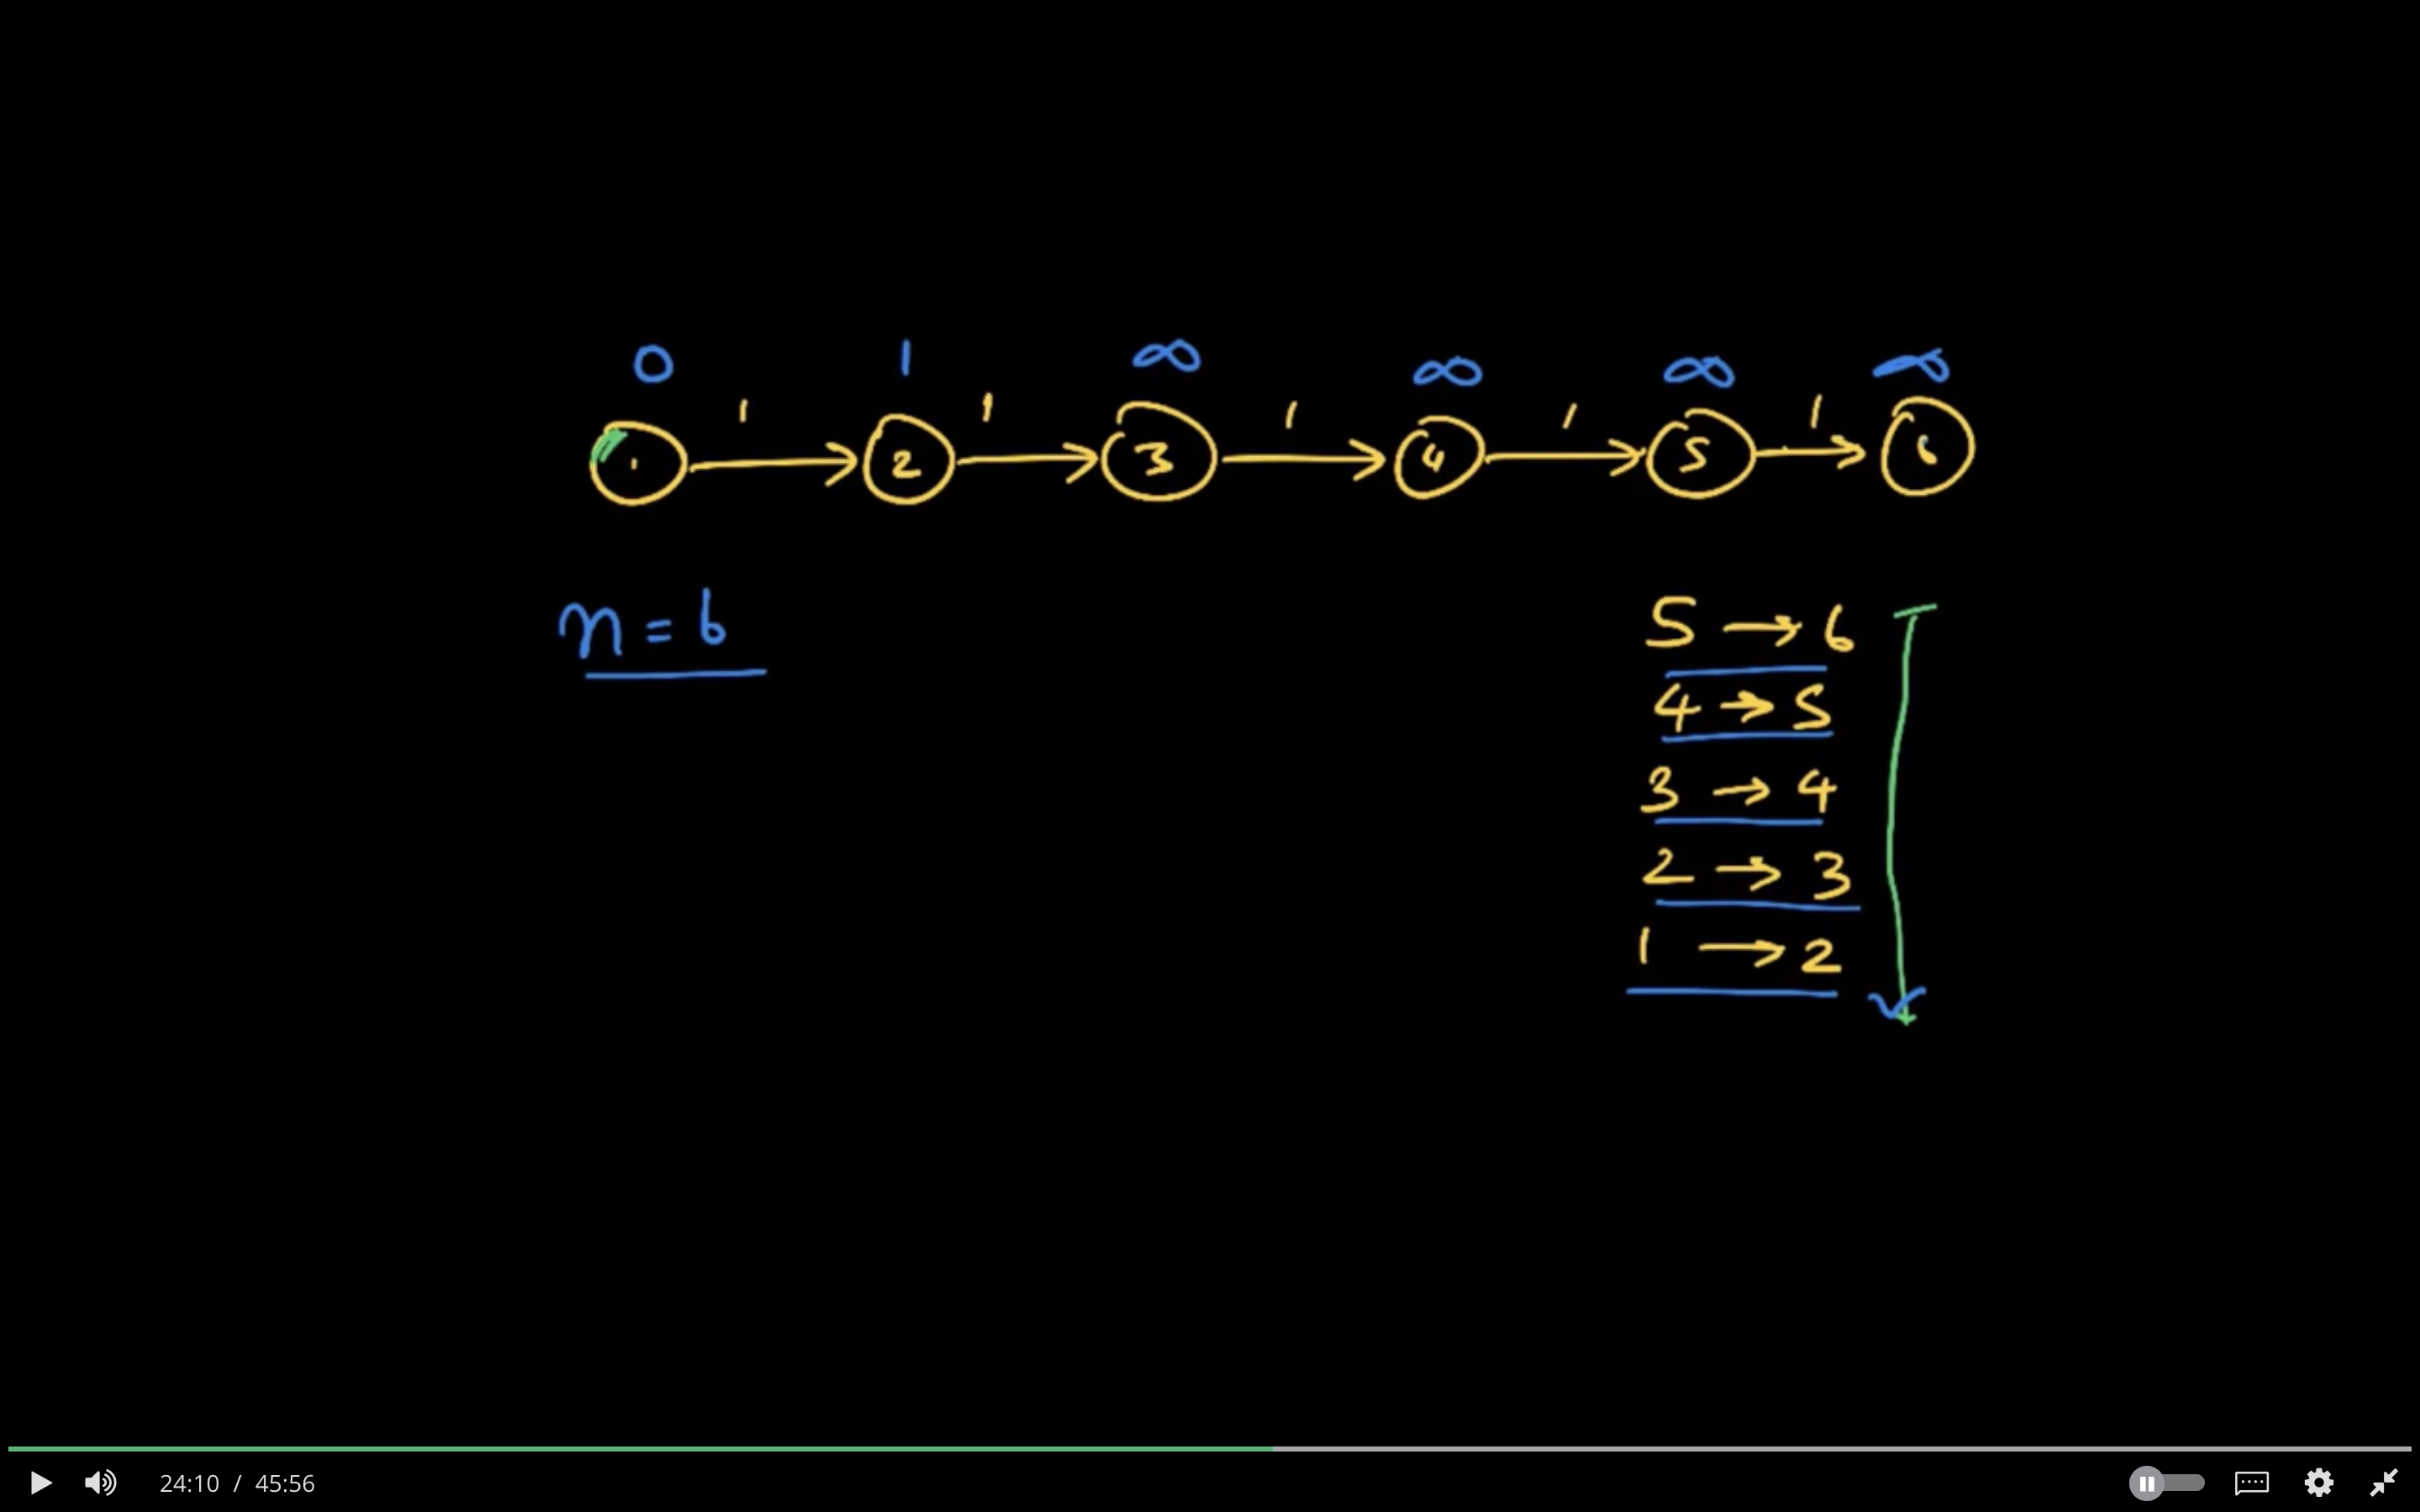 0 1 ∞ ∞ ∞ ∞
1 1 1 1 1
1 → 2 → 3 → 4 → 5 → 6
n = 6
5 → 6
4 → 5
3 → 4
2 → 3
1 → 2
24:10 / 45:56